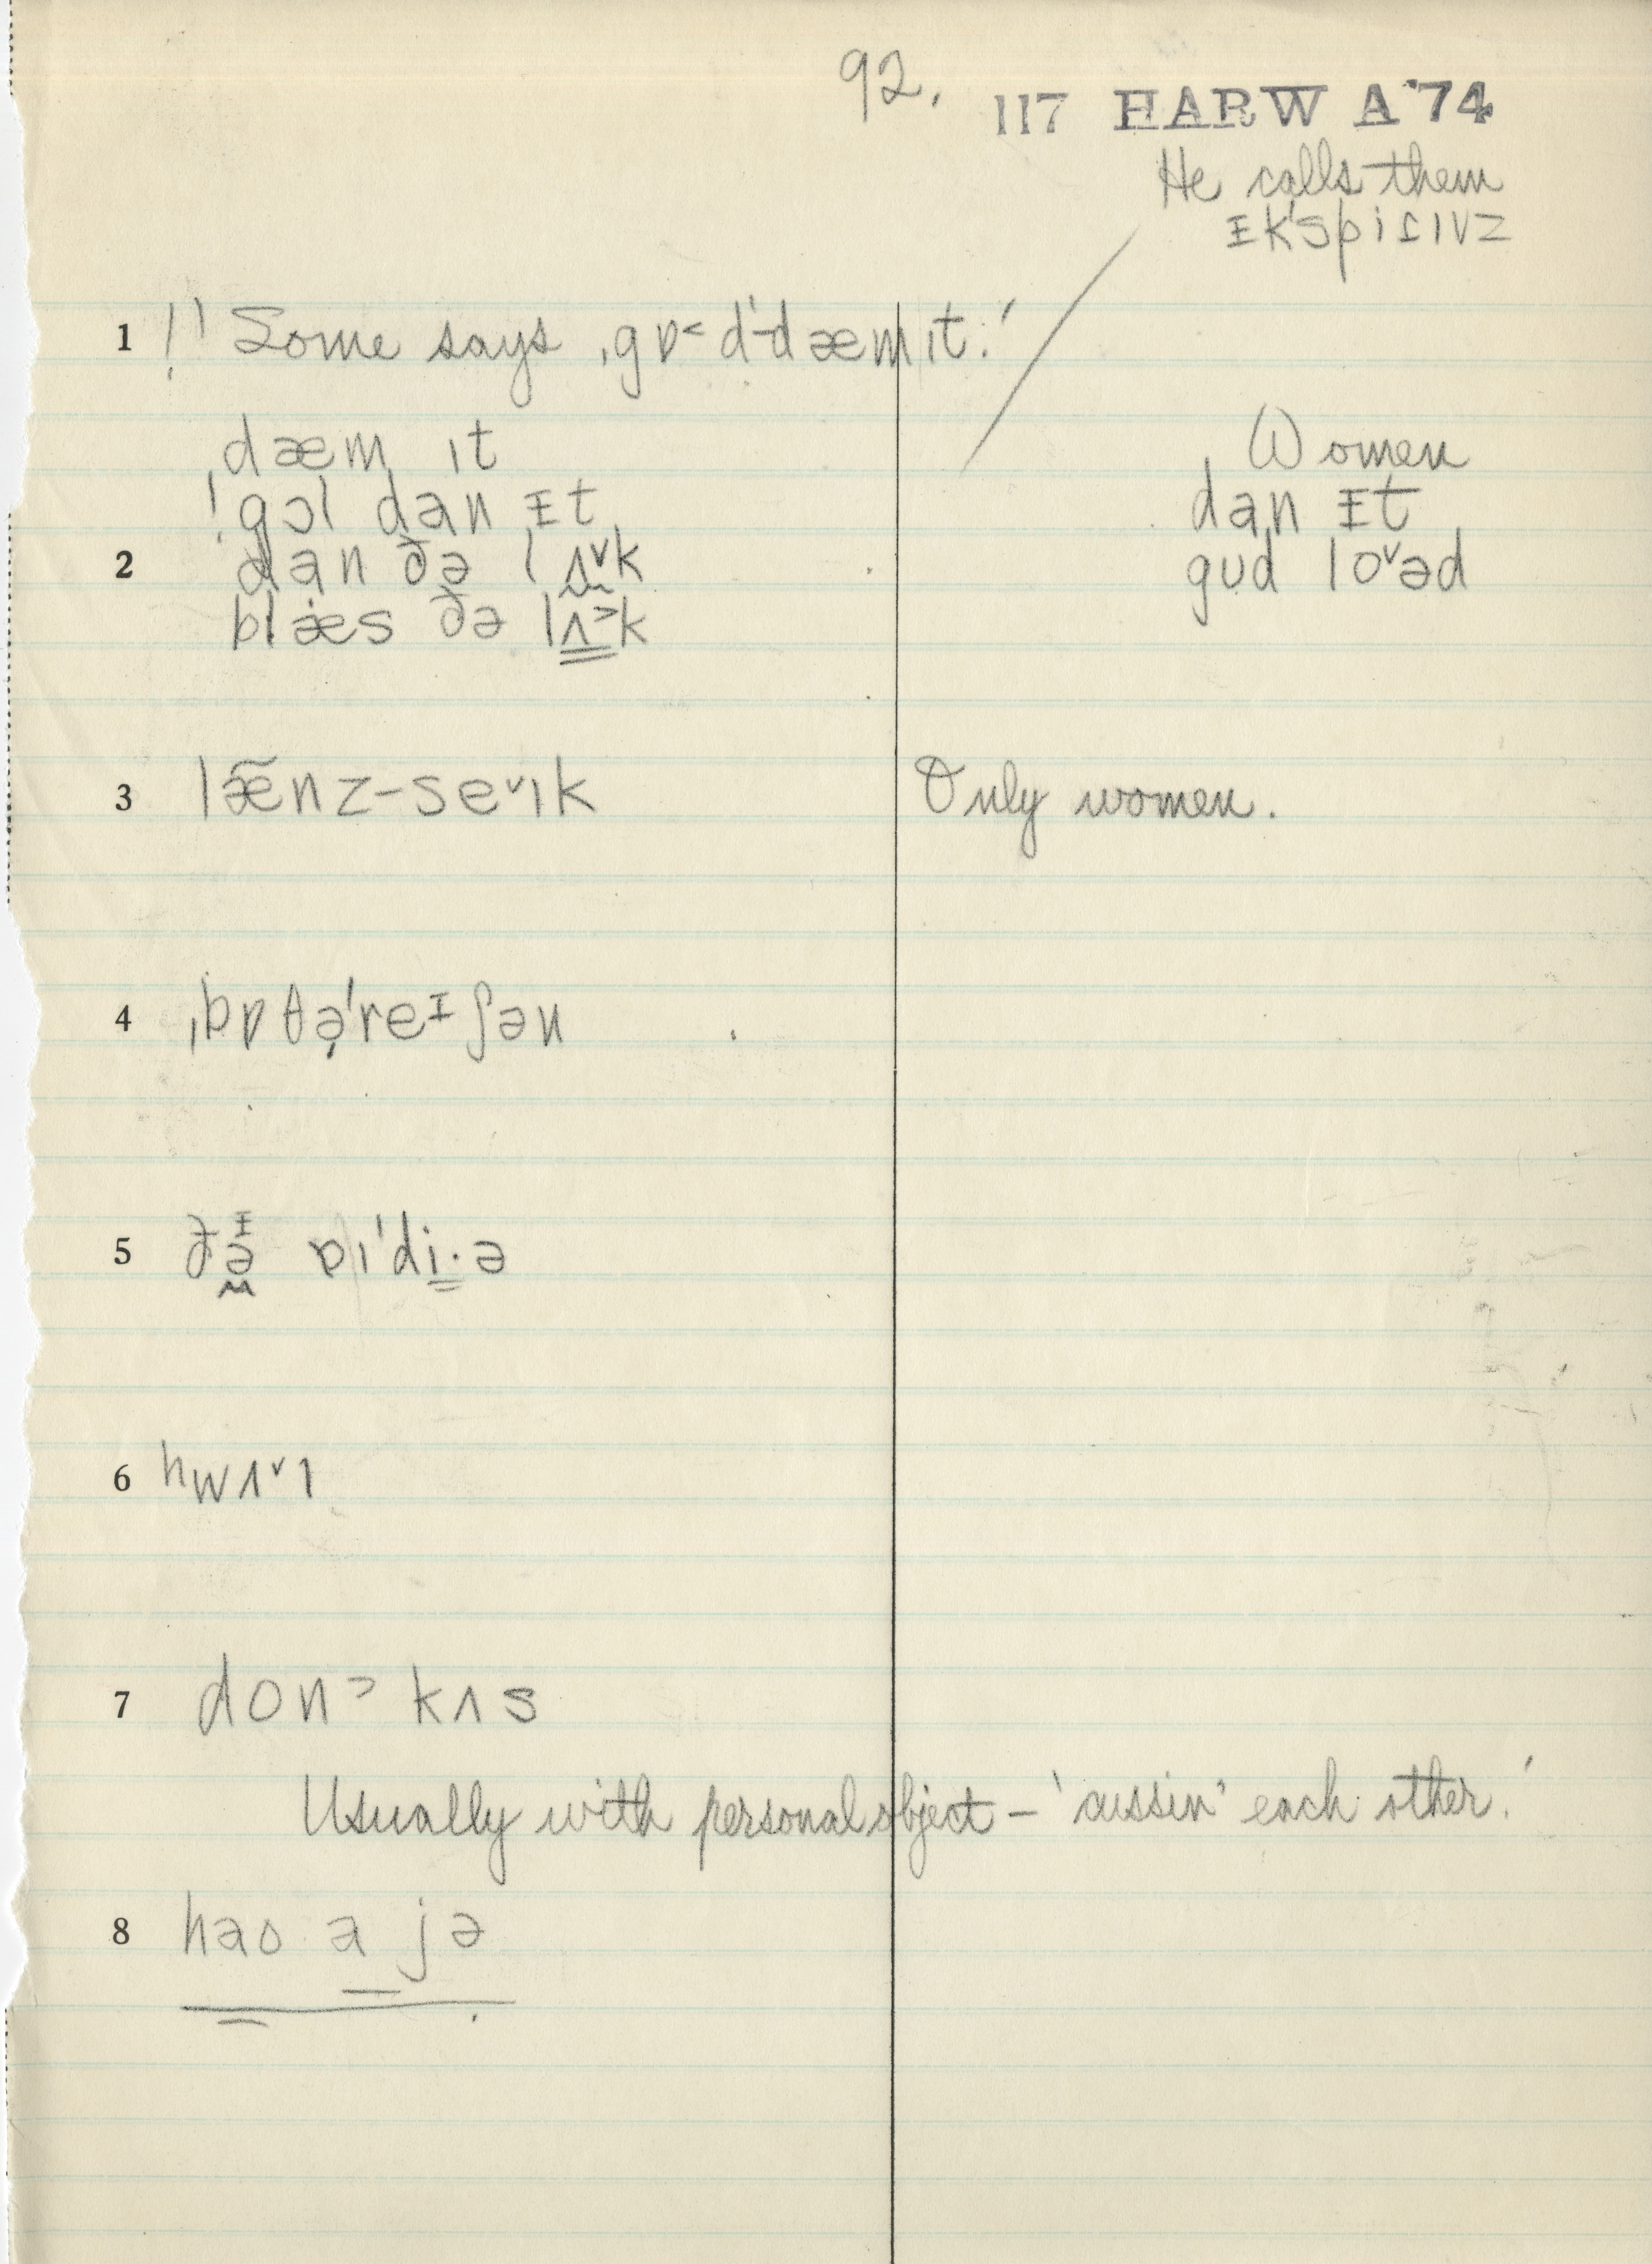 92.
117 HARW A '74
He calls them
ᵻk'spisɪvz
1 !' Some says ˌgɒ˂d'-dæm ɪt.'
ˌdæm ɪt
!gɔl dan ᵻt
2 dan ðə lʌ˅k
blæs ðə lʌ˃k
Women
dan ᵻt
gud lo˅əd
3 læ̃nz-se˅ɪk
Only women.
4 ˌbɒθə̣'reᵻʃən
5 ðə ɒɪ'di·ə
6 hwʌ˅ɪ
7 don˃ kʌs
Usually with personal object – 'cussin' each other.'
8 hao a jə